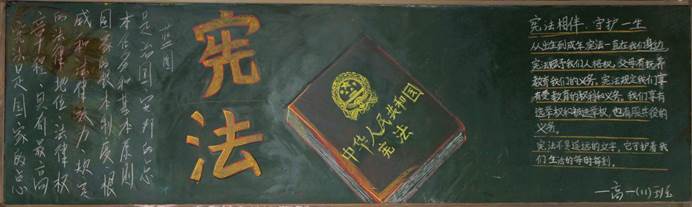 宪法是国家的总
章程,具有最高
的法律地位、法律权
威和法律效力,规定
国家的根本制度、根
本任务和基本原则
是治国安邦的总
蓝图
宪法
中华人民共和国
宪法
宪法相伴,守护一生
从出生到成年宪法一直在我们身边,
宪法赋予我们人格权,父母有抚养
教育我们的义务,宪法规定我们享
有受教育的权利和义务,我们享有
选举权和被选举权,也有服兵役的
义务。
宪法不是遥远的文字,它守护着我
们生活的每时每刻。
—高一(11)班